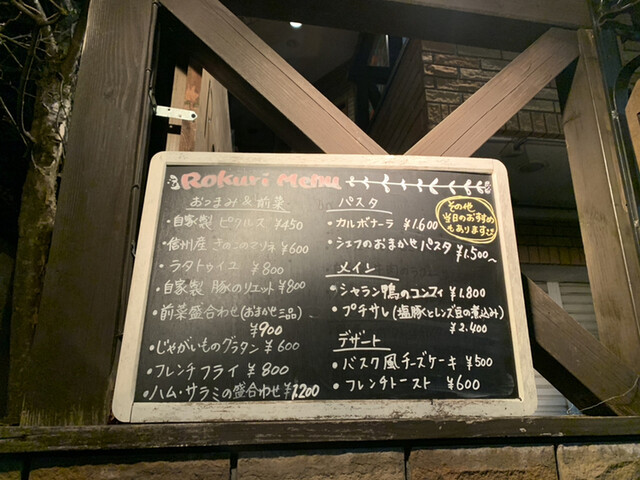 Rokuri Menu
おつまみ&前菜
・自家製 ピクルス ¥450
・信州産 きのこのマリネ ¥600
・ラタトゥイユ ¥800
・自家製 豚のリエット ¥800
・前菜盛合わせ(おまかせ三品)
¥900
・じゃがいものグラタン ¥600
・フレンチフライ ¥800
・ハム・サラミの盛合わせ ¥1,200
パスタ
・カルボナーラ ¥1,600
・シェフのおまかせパスタ
¥1,500~
その他
当日のおすすめ
もあります
メイン
・シャラン鴨のコンフィ ¥1,800
・プチサレ(塩豚とレンズ豆の煮込み)
¥2,400
デザート
・バスク風チーズケーキ ¥500
・フレンチトースト ¥600